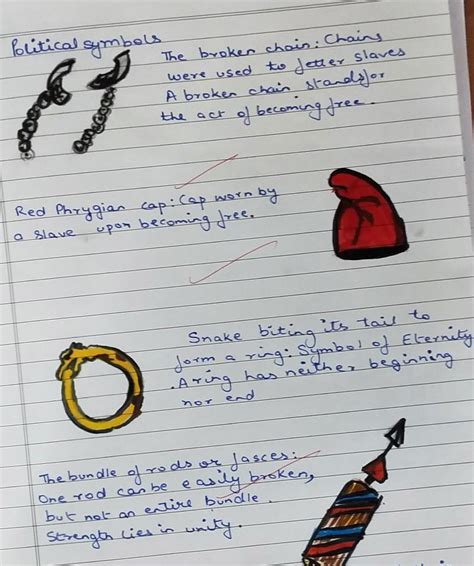 Political symbols
The broken chain: Chains
were used to fetter slaves
A broken chain stands for
the act of becoming free.
Red Phrygian cap: Cap worn by
a slave upon becoming free.
Snake biting its tail to
form a ring: Symbol of Eternity
. A ring has neither beginning
nor end
The bundle of rods or fasces:
One rod can be easily broken,
but not an entire bundle.
Strength lies in unity.